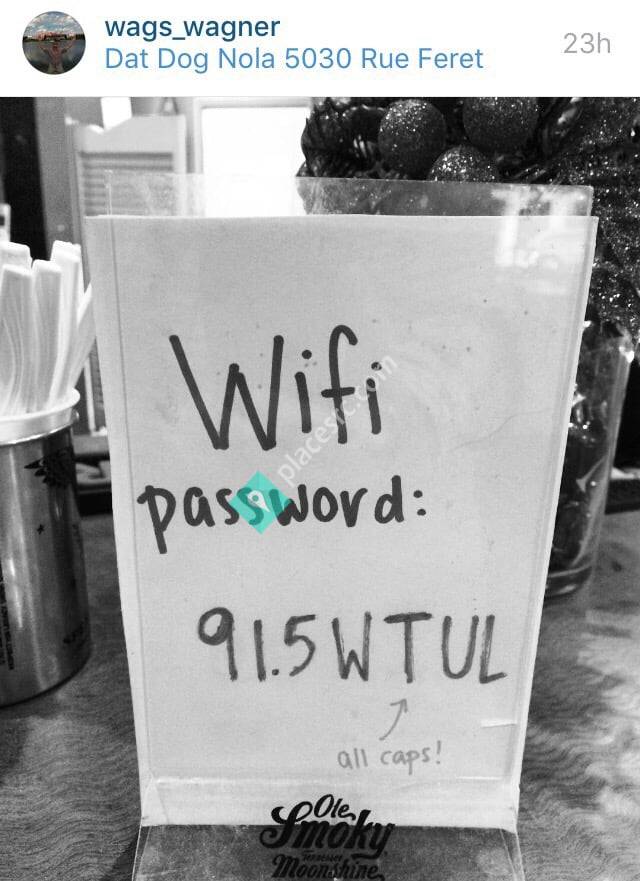 wags_wagner
Dat Dog Nola 5030 Rue Feret
23h
Wifi
password:
91.5WTUL
all caps!
placesfc.com
Ole
Smoky
Tennessee
Moonshine